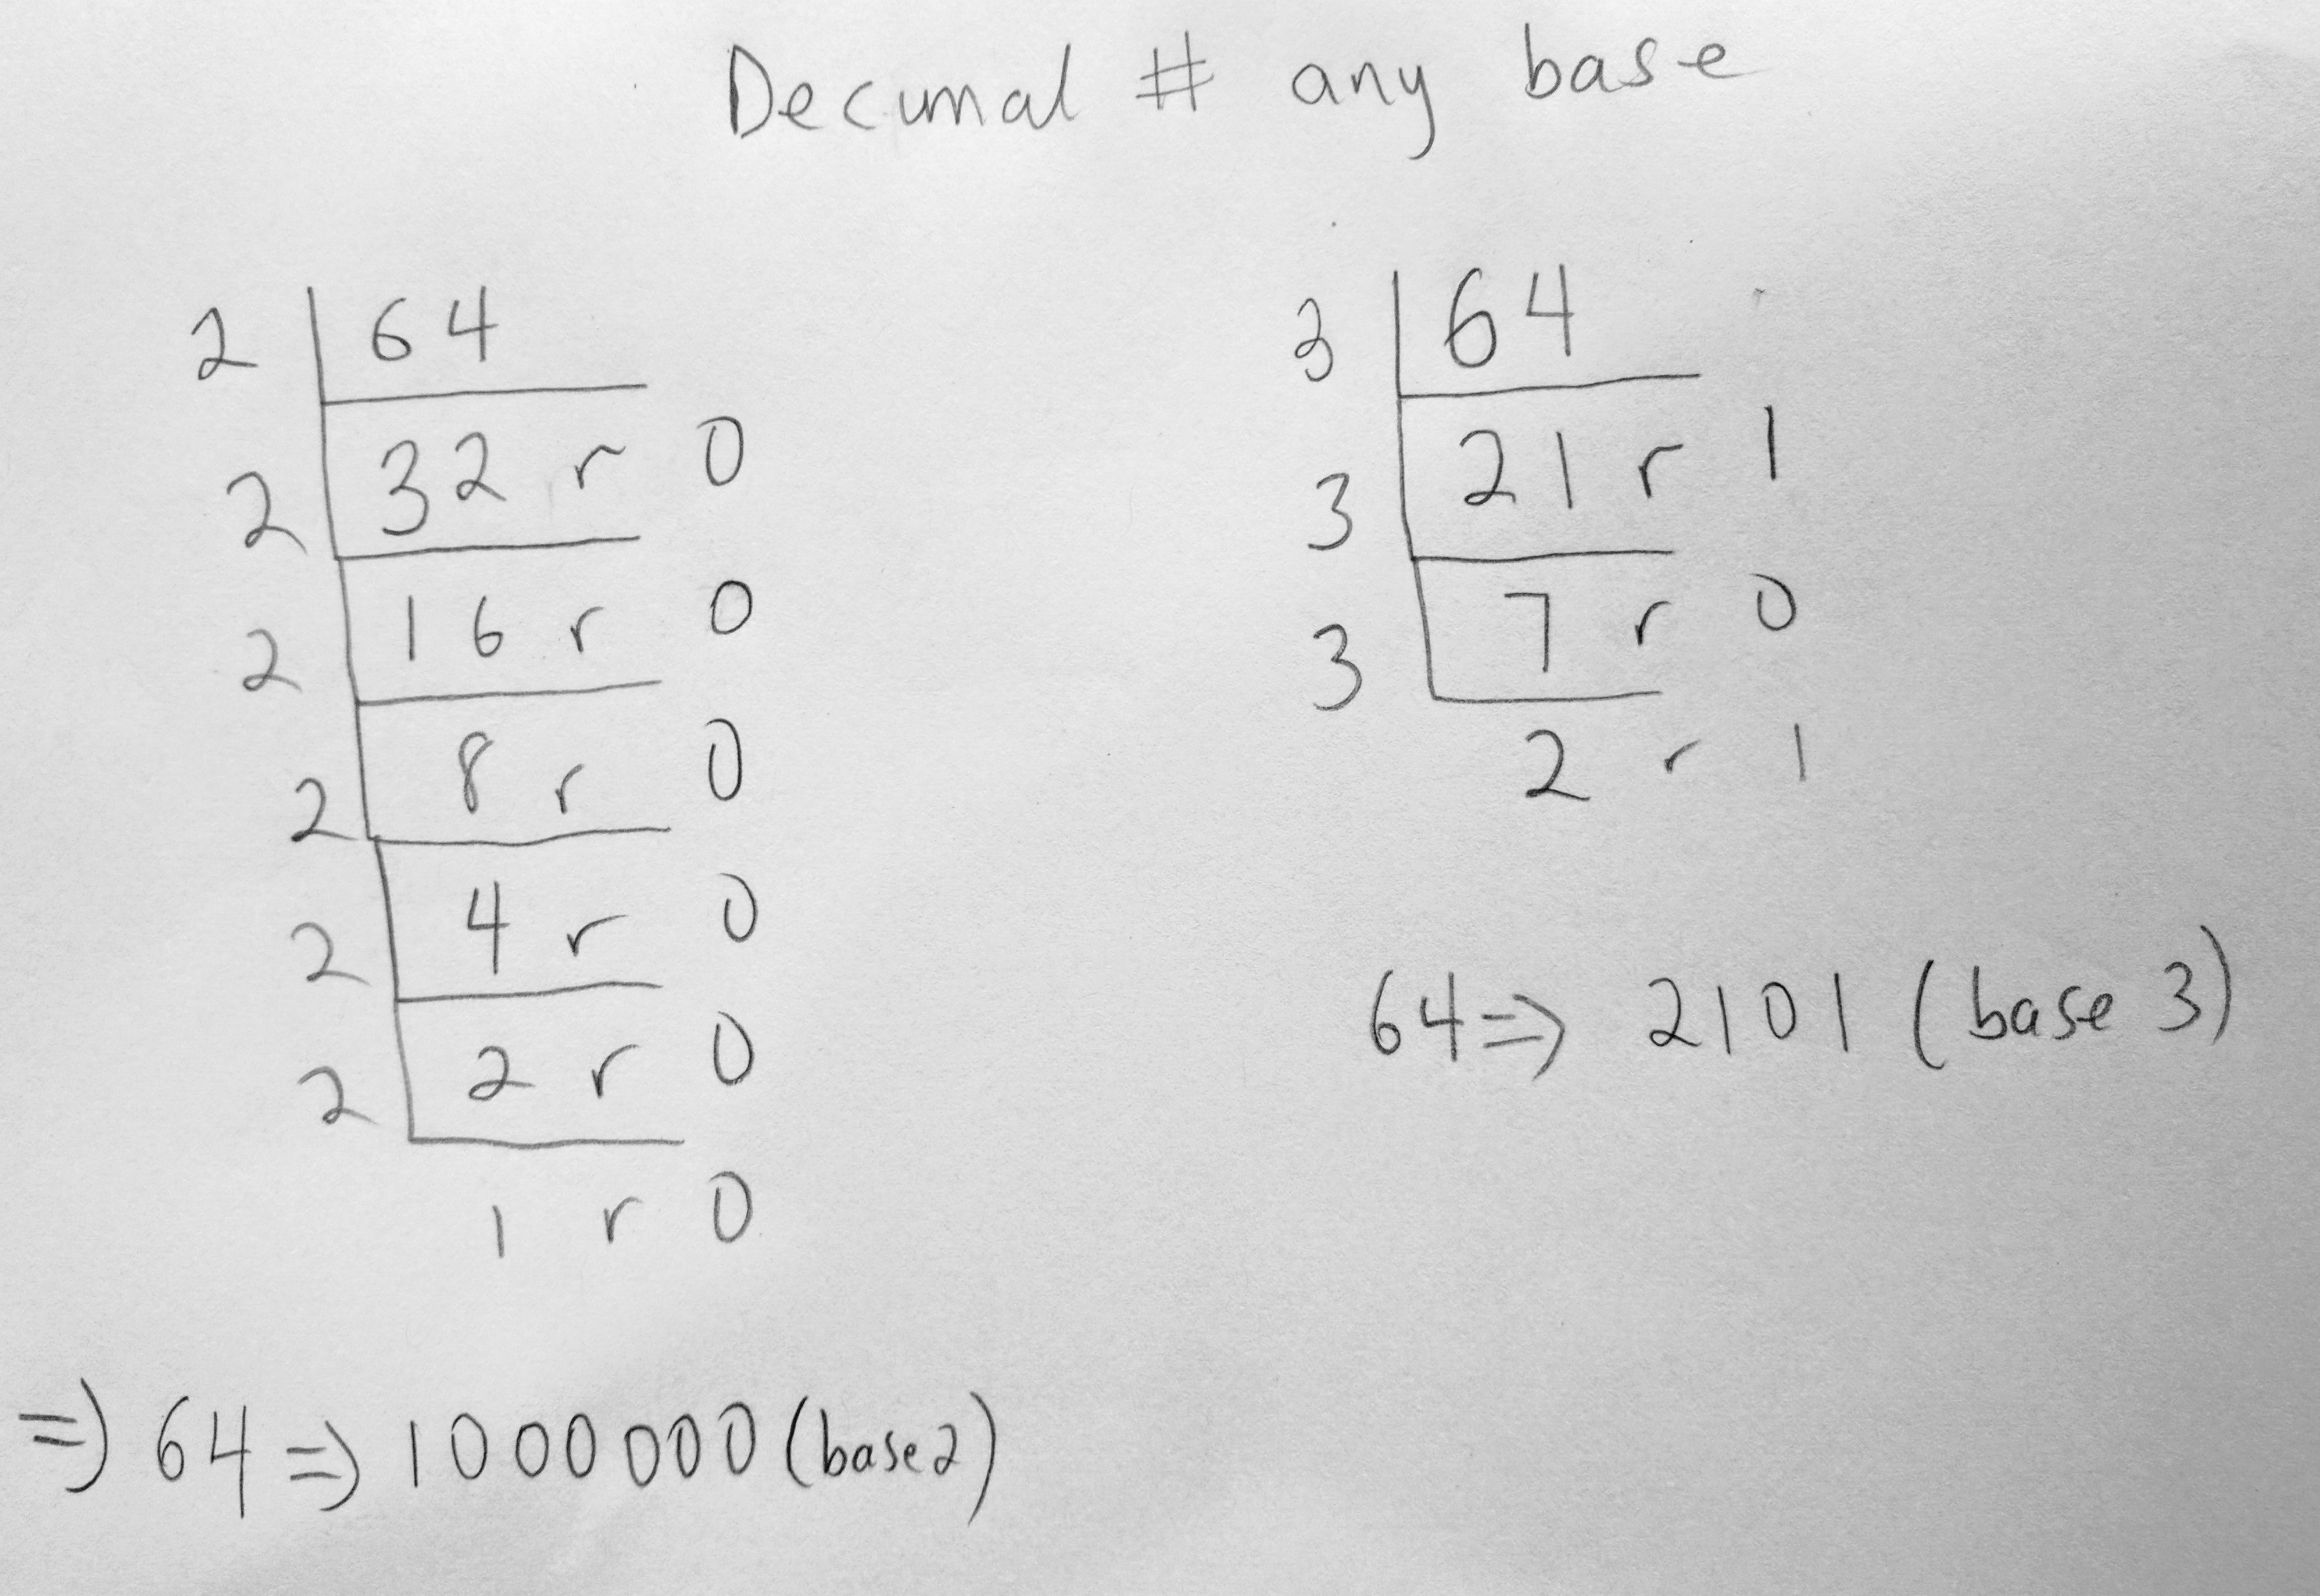 Decimal # any base
2 | 64
2 | 32 r 0
2 | 16 r 0
2 | 8 r 0
2 | 4 r 0
2 | 2 r 0
1 r 0
=> 64 => 1000000 (base 2)
3 | 64
3 | 21 r 1
3 | 7 r 0
2 r 1
64 => 2101 (base 3)